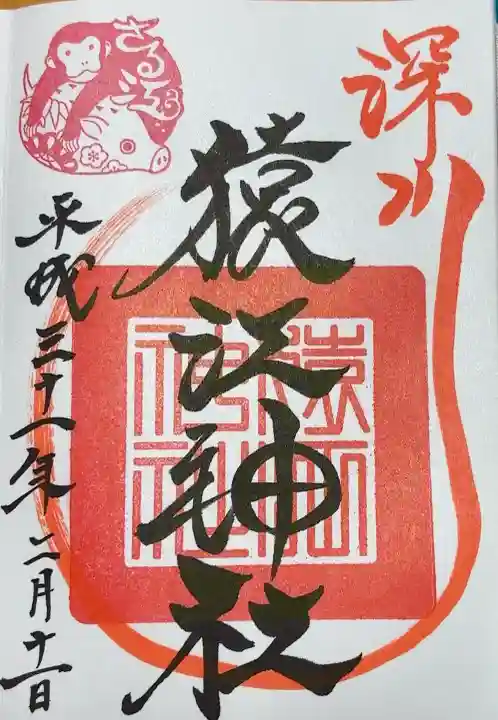 深川
猿江神社
平成三十一年二月十一日
さる江
猿江
神社